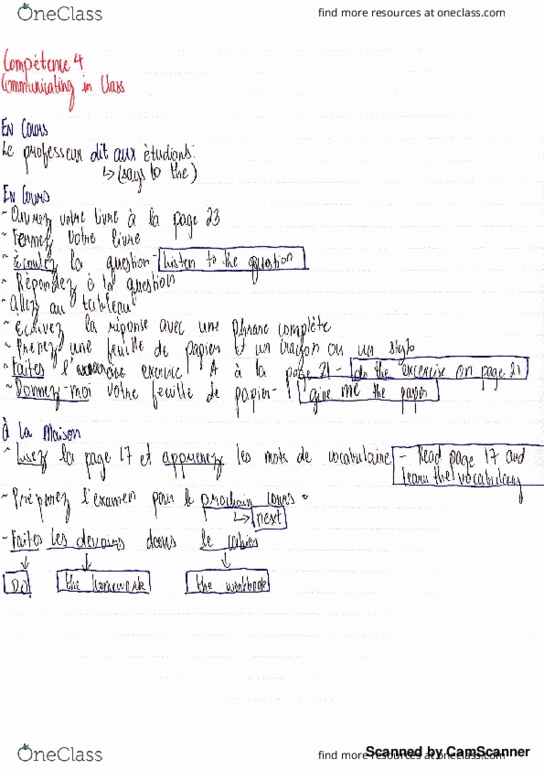 OneClass
find more resources at oneclass.com
Compétence 4
Communicating in Class
En Cours
Le professeur dit aux étudiants:
↳ (says to the)
En Cours
- Ouvrez votre livre à la page 23
- Fermez votre livre
- Écoutez la question - Listen to the question
- Répondez à la question
- Allez au tableau
- écrivez la réponse avec une phrase complète
- Prenez une feuille de papier et un crayon ou un stylo
- Faites l' exercice A à la page 21 - do the exercise on page 21
- Donnez-moi votre feuille de papier - give me the paper
À la Maison
- Lisez la page 17 et apprenez les mots de vocabulaire - Read page 17 and
learn the vocabulary
- Préparez l'examen pour le prochain cours.
↳ next
- Faites les devoirs dans le cahier
↓ ↓ ↓
Do the homework the workbook
OneClass
find more resources at oneclass.com
Scanned by CamScanner